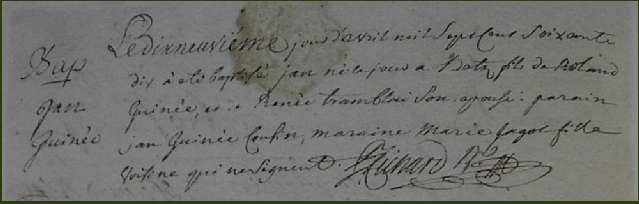 Le dixneuvième jour d'avril mil Sept Cent Soixante
Bap
dix à eté baptisé jan né le jour fils de Roland
jan
Guinée, et e Renée tramblai Son epouse: parain
Guinée
jan Guinée Cousin, maraine Marie fille
voisine qui ne Signent.